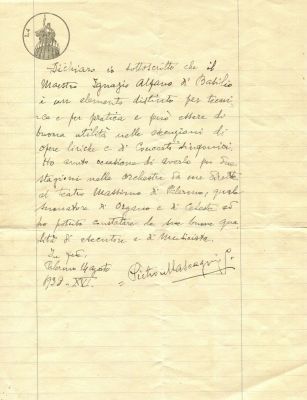 Dichiaro io sottoscritto che il
Maestro Ignazio Alfano di Basilio
è un elemento distinto per tecni-
ca e per pratica e può essere di
buona utilità nelle esecuzioni di
opere liriche e di Concerti sinfonici.
Ho avuto occasione di averlo per due
stagioni nelle orchestre da me dirette
al Teatro Massimo di Palermo, quale
suonatore di Organo e di Celeste ed
ho potuto constatare le sue buone qua-
lità di esecutore e di Musicista.
In fede,
Palermo 14 agosto
1938-XVI.
= Pietro Mascagni